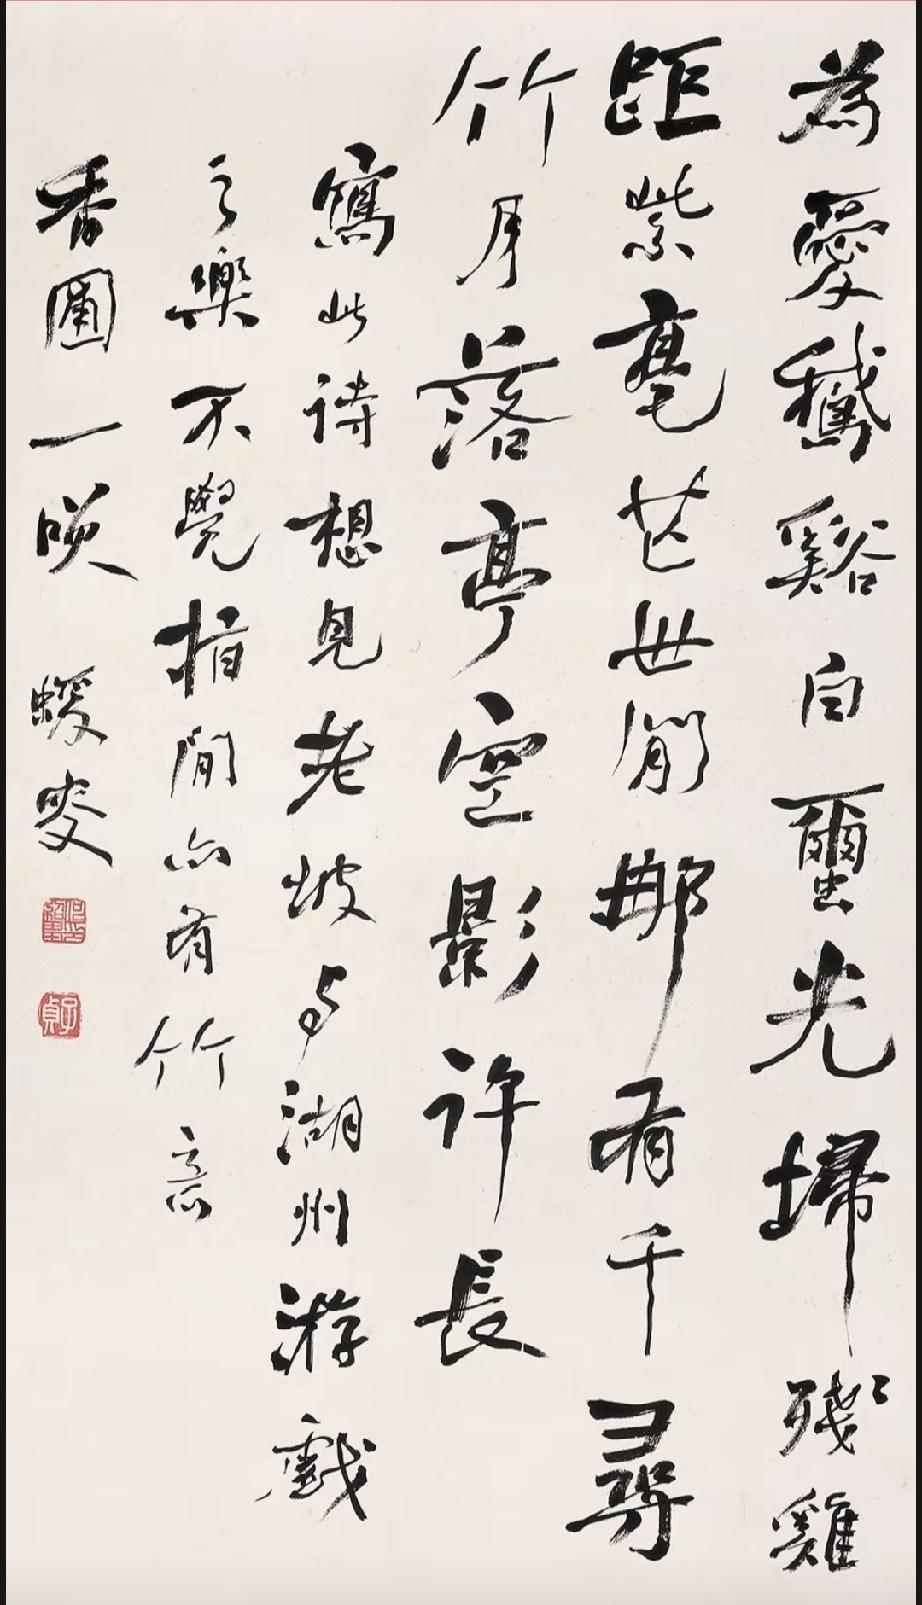 為愛鵝谿白蠒光掃殘雞
距紫毫芒世間那有千尋
竹月落亭空影許長
寫此詩想見老坡与湖州游戲
之樂不覺指間亦有竹意
香圃一咲 蝯叟
何紹基
子貞